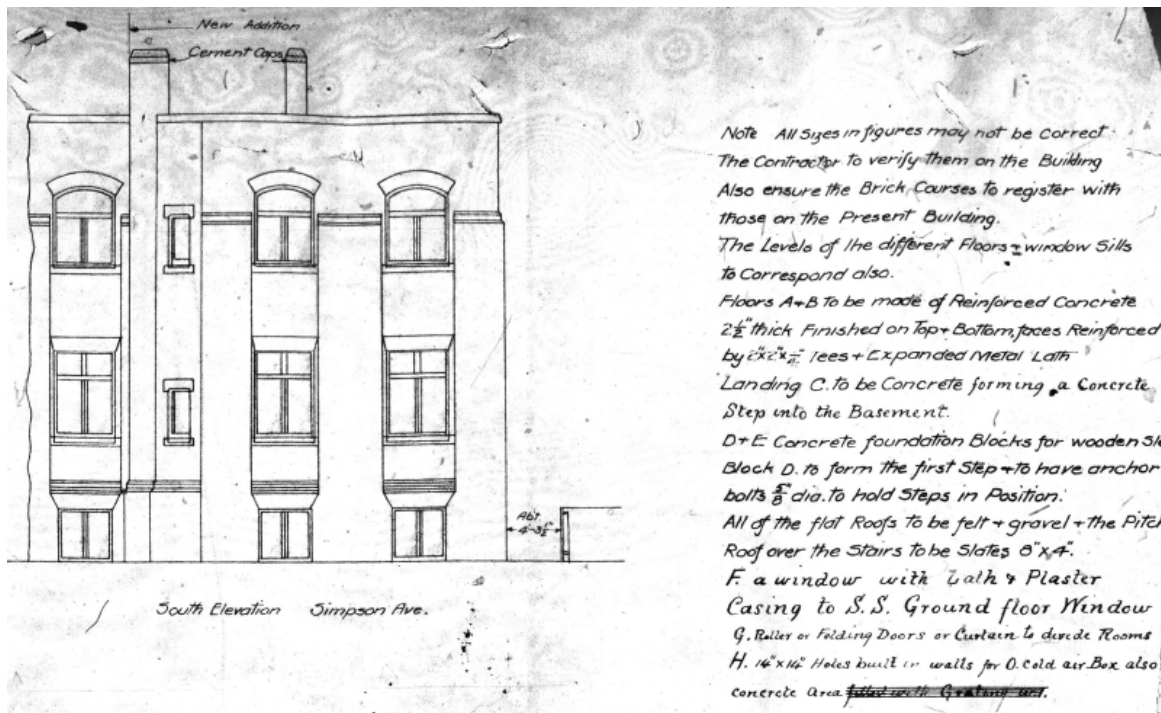 New Addition
Cement Caps
Note All Sizes in figures may not be Correct
The Contractor to verify them on the Building
Also ensure the Brick Courses to register with
those on the Present Building.
The Levels of the different Floors + window Sills
to Correspond also.
Floors A+B to be made of Reinforced Concrete
2½" thick Finished on Top + Bottom, faces Reinforced
by Tees + Expanded Metal Lath
Landing C. to be Concrete forming a Concrete
Step into the Basement.
D+E Concrete foundation Blocks for wooden
Block D. to form the first Step + to have anchor
bolts 5/8" dia. to hold Steps in Position.
Abt.
All of the flat Roofs to be felt + gravel + the Pitch
Roof over the Stairs to be Slates 8"x4".
F. a window with Lath & Plaster
South Elevation Simpson Ave.
Casing to S.S. Ground floor Window
G. Roller or Folding Doors or Curtain to divide Rooms
H. 14"x14" Holes built in walls for O. cold air Box also
concrete area